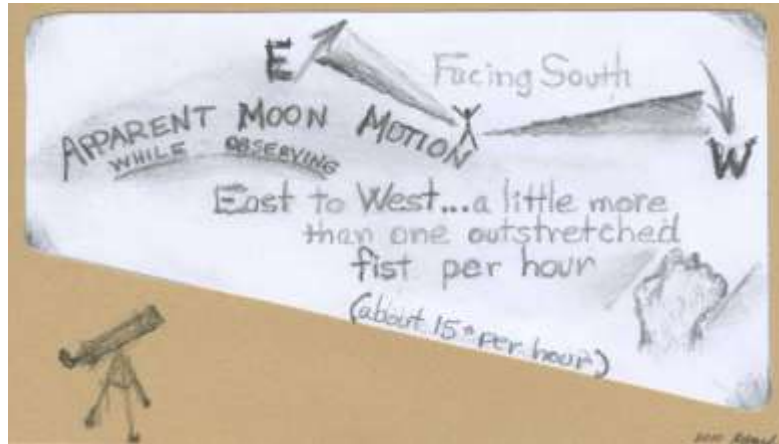 E
Facing South
APPARENT MOON MOTION
WHILE OBSERVING
W
East to West...a little more
than one outstretched
fist per hour
(about 15° per hour)
2010